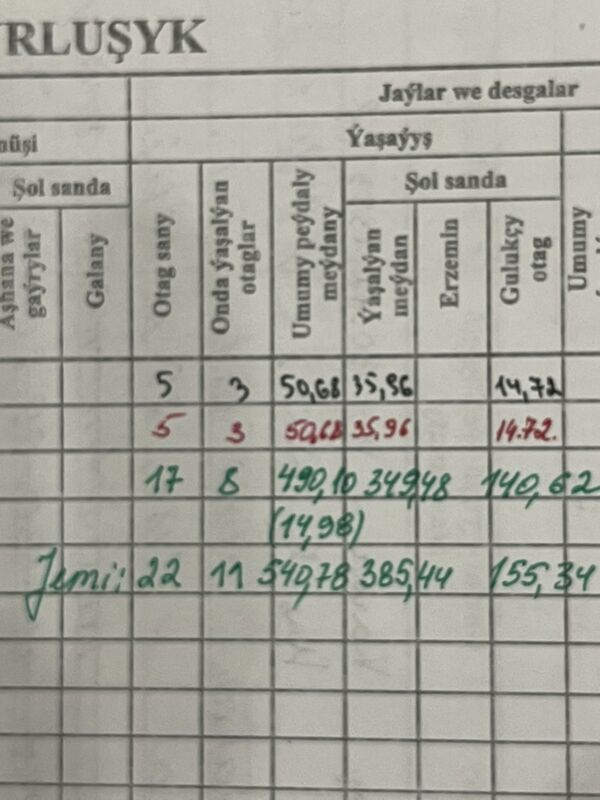 RLUŞYK
Jaýlar we desgalar
Ýaşaýyş
Şol sanda
Şol sanda
Aşhana we gaýrylar
Galany
Otag sany
Onda ýaşalýan otaglar
Umumy peýdaly meýdany
Ýaşalýan meýdan
Erzemin
Gulukçy otag
Umumy
5 3 50,68 35,96 14,72
5 3 50,68 35,96 14.72.
17 8 490,10 349,48 140,62
(14,98)
Jemi: 22 11 540,78 385,44 155,34